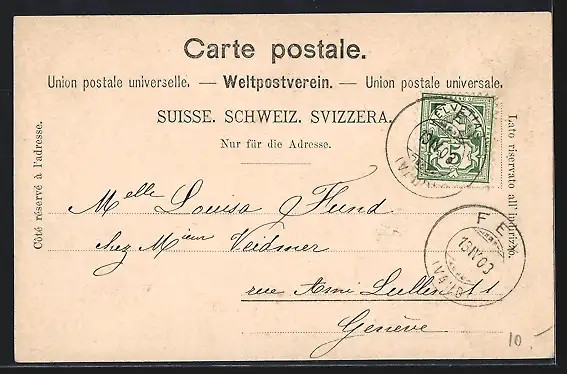 Carte postale.
Union postale universelle. — Weltpostverein. — Union postale universale.
SUISSE. SCHWEIZ. SVIZZERA.
Nur für die Adresse.
Côté réservé à l'adresse.
Lato riservato all'indirizzo.
HELVETIA
5
Melle Louisa Fund
chez Mr Veidmer
rue Ami Lullin 11
Genève
FEY
13 IV 03
(VAUD)
10.-